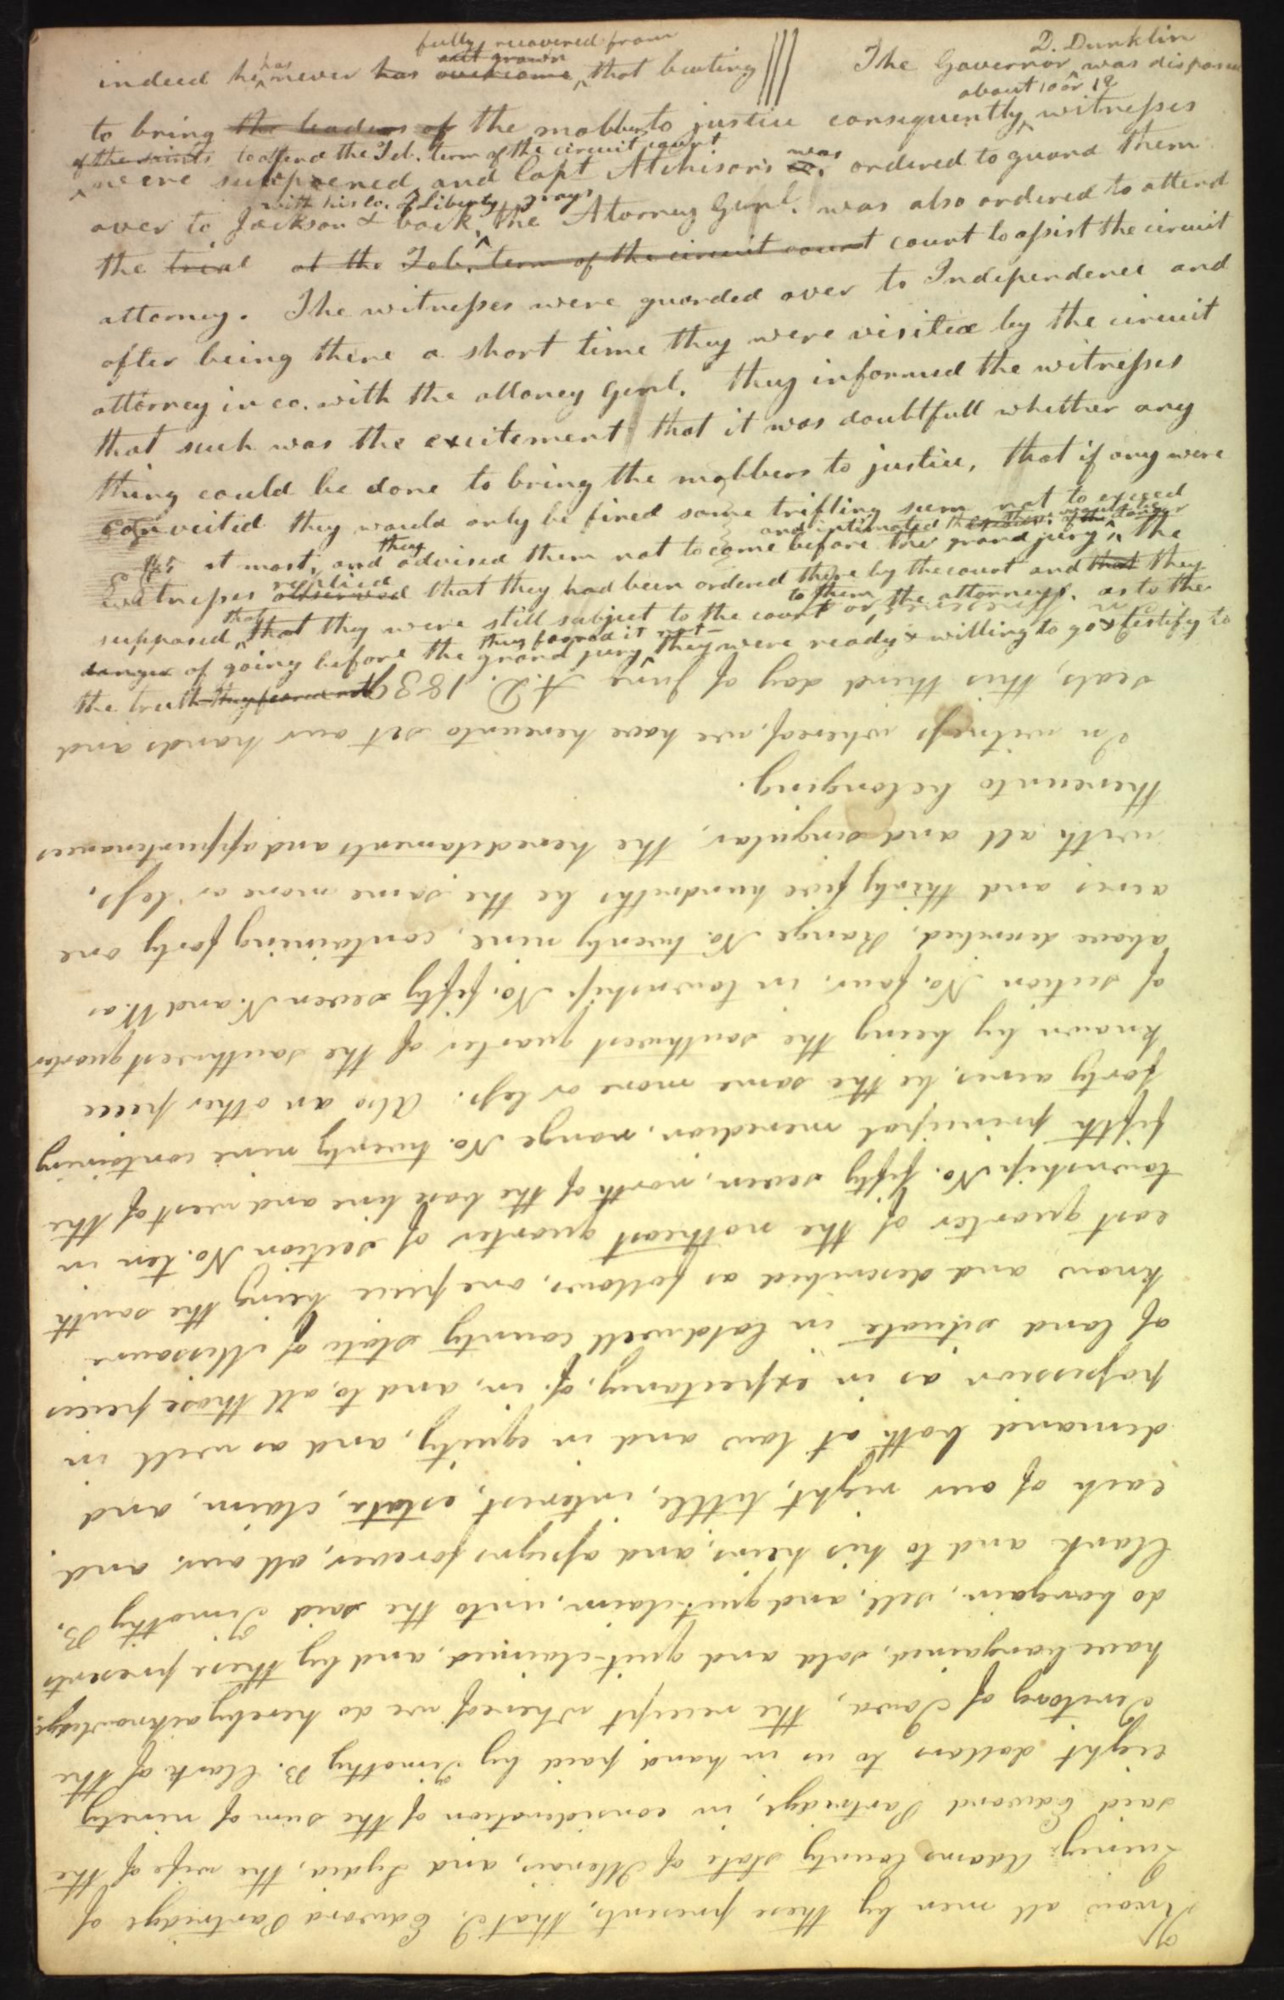 fully recovered from
out grown
indeed he has never has overcome that beating /// The Governor D. Dunklin was disposed
about 10 or 12
to bring the leaders of the mobbers to justice consequently witnesses
of the saints to attend the Feb. term of the circuit court
were subpoened, and Capt Atchison's co. was ordered to guard them
with his co. Liberty grays
over to Jackson & back, the Atorney Genl. was also ordered to attend
the trial at the Feb. term of the circuit court court to assist the circuit
attorney. The witnesses were guarded over to Independence and
after being there a short time they were visited by the circuit
attorney in co. with the attoney Genl. they informed the witnesses
that such was the excitement that it was doubtfull whether any
thing could be done to bring the mobbers to justice, that if any were
convicted they would only be fined some trifling sum not to exceed
and intimated
$5 at most, and they advised them not to come before the grand jury, The
witnesses replied observed that they had been ordered there by the court and that they
supposed that that they were still subject to the court or to them the attorneys. as to the
danger of going before the grand jury they feared it not they were ready & willing to go & testify to
the truth they feared not
Know all men by these presents, that I, Edward Partridge of
Quincy Adams County state of Illinois, and Lydia, the wife of the
said Edward Partridge, in consideration of the sum of ninety
eight dollars to us in hand paid by Timothy B. Clark of the
Territory of Iowa, the receipt whereof we do hereby acknowledge
have bargained, sold and quit-claimed, and by these presents
do bargain, sell, and quit-claim, unto the said Timothy B.
Clark and to his heirs, and assigns forever, all our, and
each of our right, tittle, interest, estate, claim, and
demand both at law and in equity, and as well in
possession as in expectancy, of, in, and to, all those peices
of land situate in Caldwell county state of Missouri
know and described as follows, one piece being the south
east quarter of the notheast quarter of section No. ten in
township No. fifty seven, north of the base line and west of the
fifth principal meredian, range No. twenty nine containing
forty acres, be the same more or less. Also an other piece
known by being the southwest quarter of the southwest quarter
of section No. four, in township No. fifty seven N. and W. as
above described, Range No. twenty nine, containing forty one
acres and thirty five hundreths be the same more or less,
with all and singular, the heredetaments and appurtenances
thereunto belonging.
In witness whereof, we have hereunto set our hands and
seals, this third day of June A.D. 1839